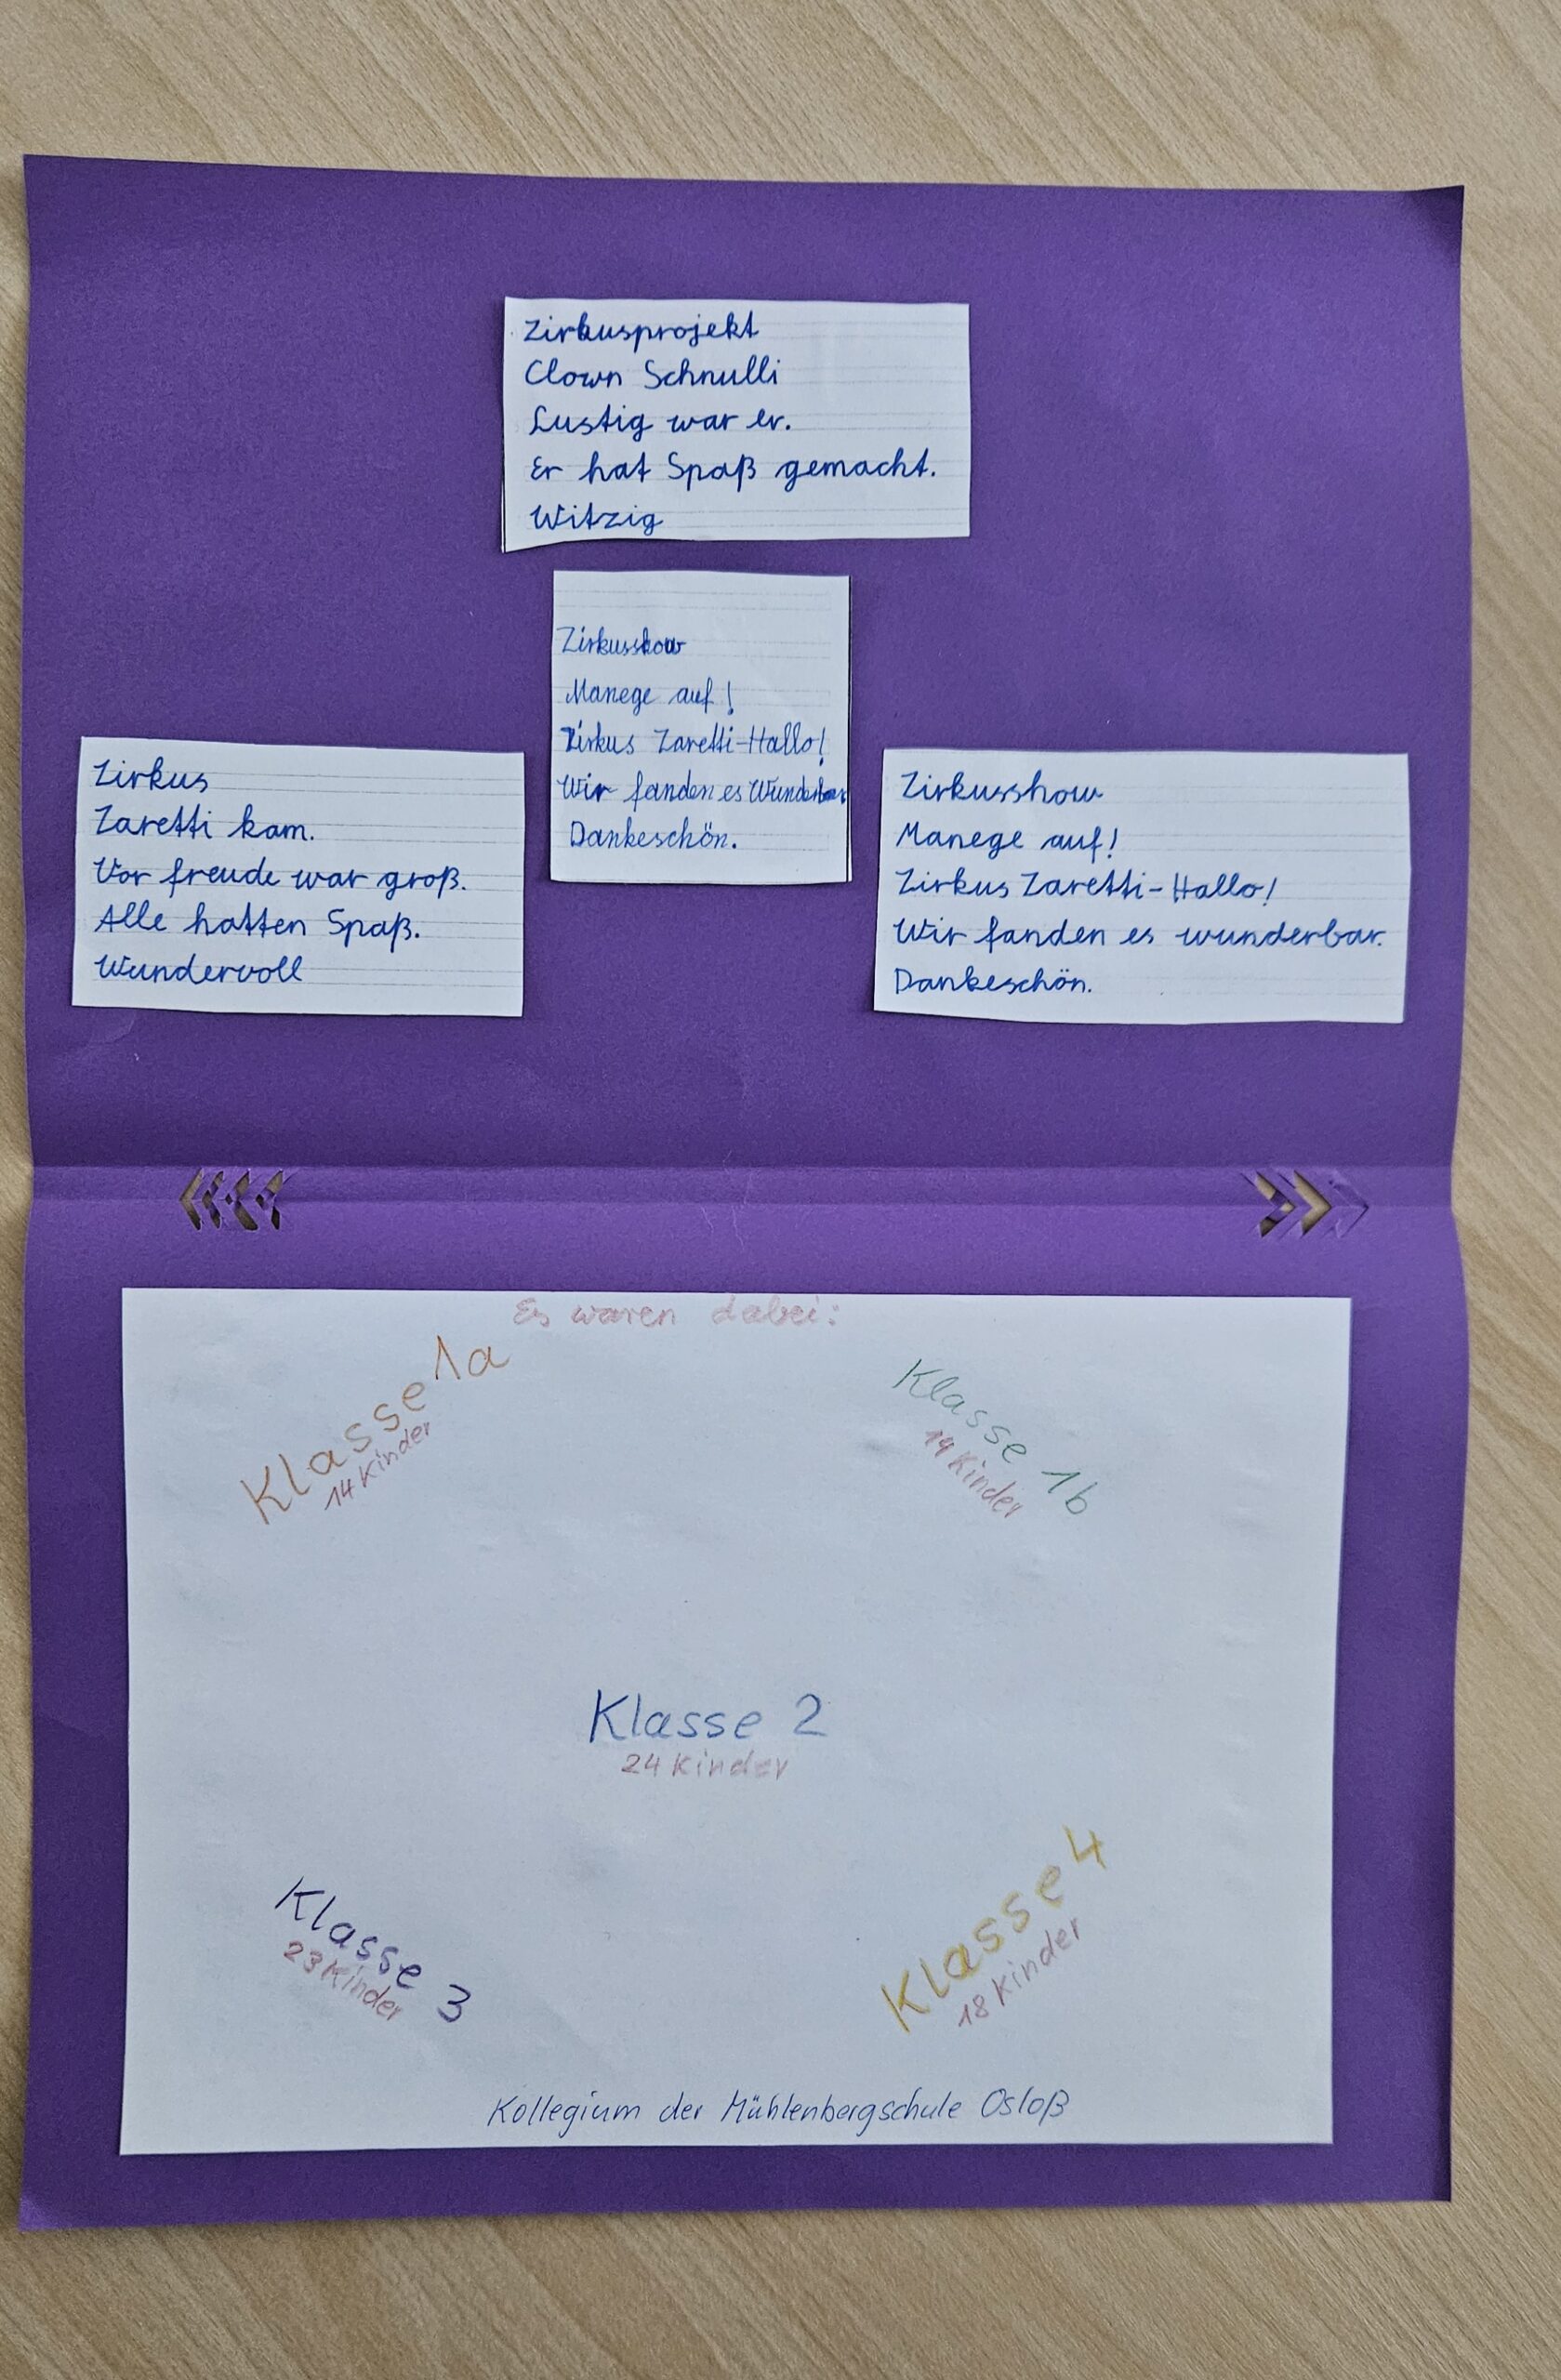 Zirkusprojekt
Clown Schnulli
Lustig war er.
Er hat Spaß gemacht.
Witzig
Zirkusshow
Manege auf!
Zirkus Zaretti-Hallo!
Wir fanden es Wunderbar
Dankeschön.
Zirkus
Zaretti kam.
Vor freude war groß.
Alle hatten Spaß.
Wundervoll
Zirkusshow
Manege auf!
Zirkus Zaretti-Hallo!
Wir fanden es wunderbar.
Dankeschön.
Es waren dabei:
Klasse 1a
14 Kinder
Klasse 1b
14 Kinder
Klasse 2
24 Kinder
Klasse 3
23 Kinder
Klasse 4
18 Kinder
Kollegium der Mühlenbergschule Osloß